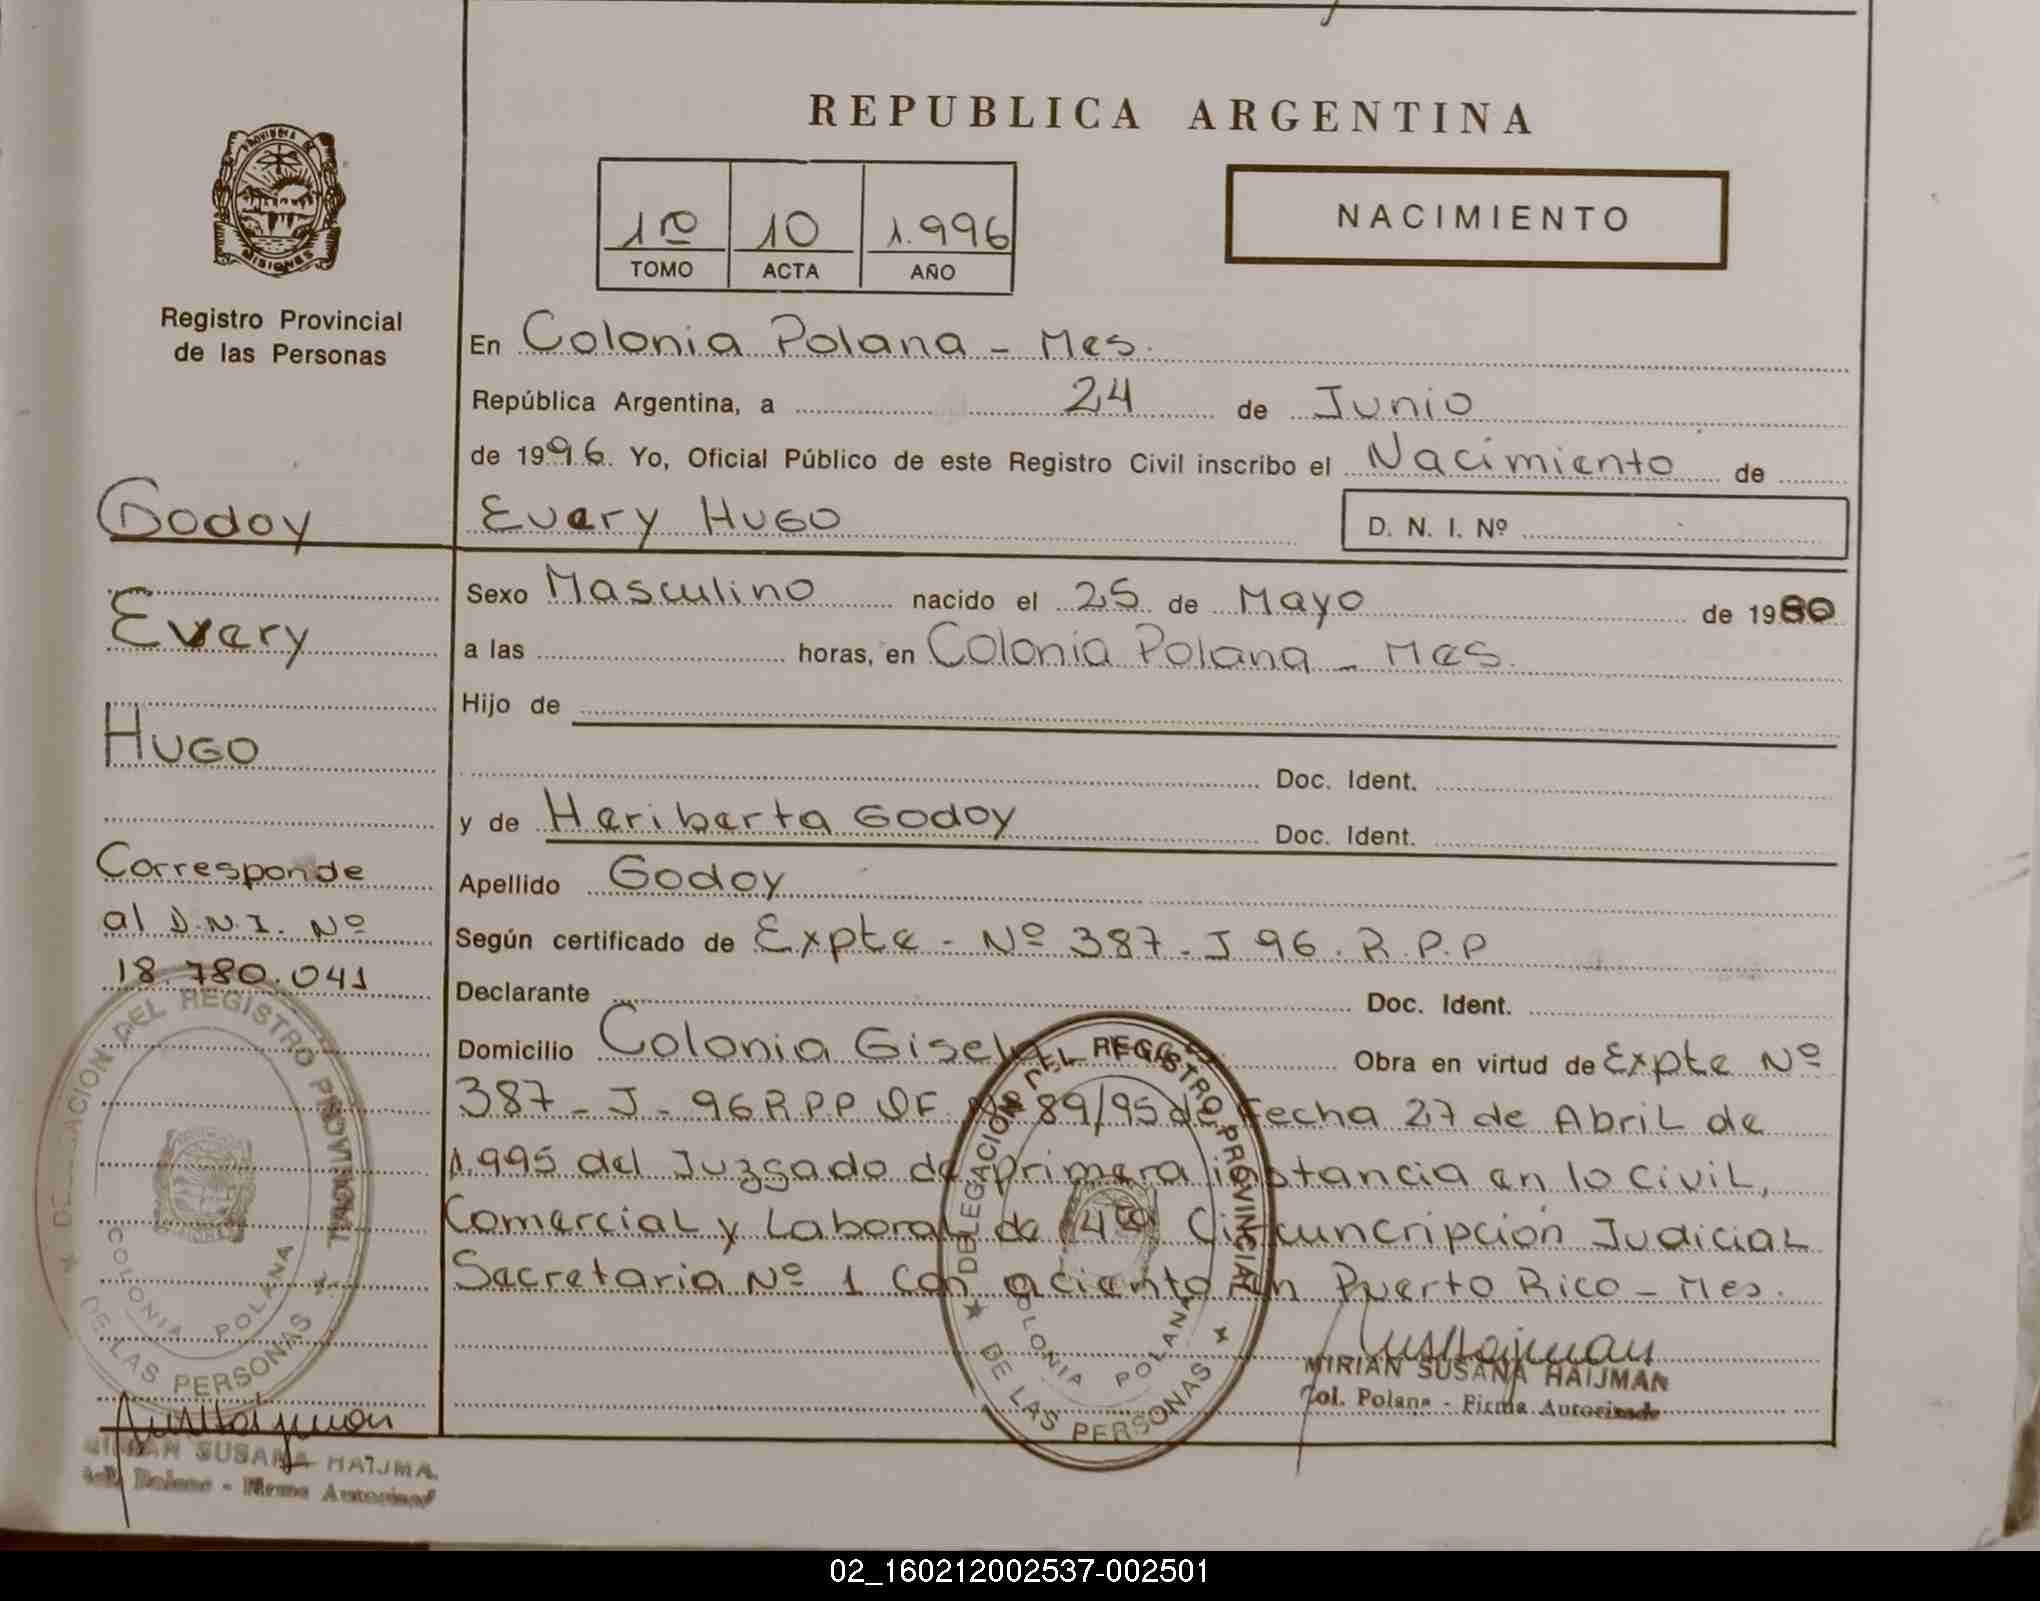 REPUBLICA ARGENTINA
PROVINCIA DE MISIONES
Registro Provincial
de las Personas
1º 10 1.996
TOMO ACTA AÑO
NACIMIENTO
En Colonia Polana - Mes.
República Argentina, a 24 de Junio
de 1996. Yo, Oficial Público de este Registro Civil inscribo el Nacimiento de
Every Hugo D. N. I. Nº
Godoy
Every
Hugo
Corresponde
al D.N.I. Nº
18.780.041
Sexo Masculino nacido el 25 de Mayo de 1980
a las horas, en Colonia Polana - Mes.
Hijo de
Doc. Ident.
y de Heriberta Godoy Doc. Ident.
Apellido Godoy
Según certificado de Expte - Nº 387 - J 96. R.P.P
Declarante Doc. Ident.
Domicilio Colonia Gisela Obra en virtud de Expte Nº
387 - J - 96 R.P.P OF. Nº 89/95 de Fecha 27 de Abril de
1.995 del Juzgado de primera instancia en lo Civil,
Comercial y Laboral de 4ta Circuncripción Judicial
Secretaria Nº 1 con aciento en Puerto Rico - Mes.
DELEGACION DEL REGISTRO PROVINCIAL
DE LAS PERSONAS
COLONIA POLANA
MIRIAN SUSANA HAIJMAN
Col. Polana - Firma Autorizada
DELEGACION DEL REGISTRO PROVINCIAL
DE LAS PERSONAS
COLONIA POLANA
MIRIAN SUSANA HAIJMA
Col. Polana - Firma Autorizad
02_160212002537-002501